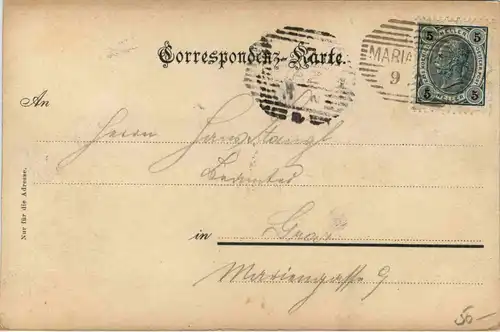 Correspondenz-Karte.
MARIA
9
5 5
5 5
An
Herrn Hans Stangl
Beamter
in Graz
Mariengasse 9
Nur für die Adresse.
50-